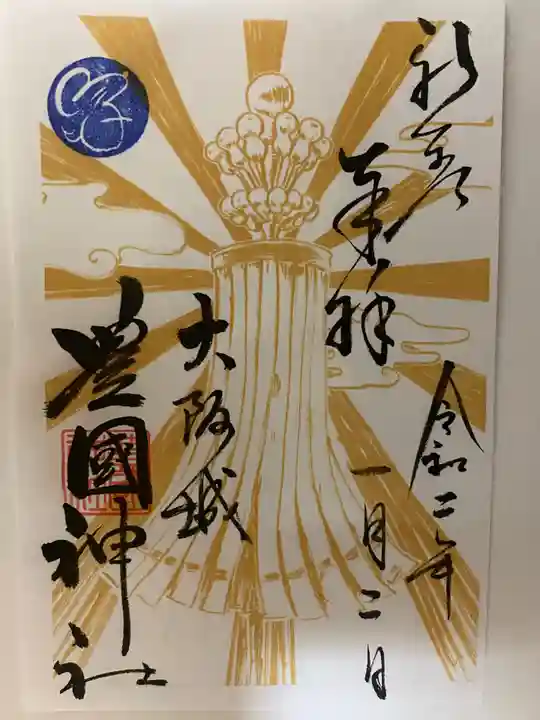 新春
奉拝
令和二年
一月二日
大阪城
豊國神社